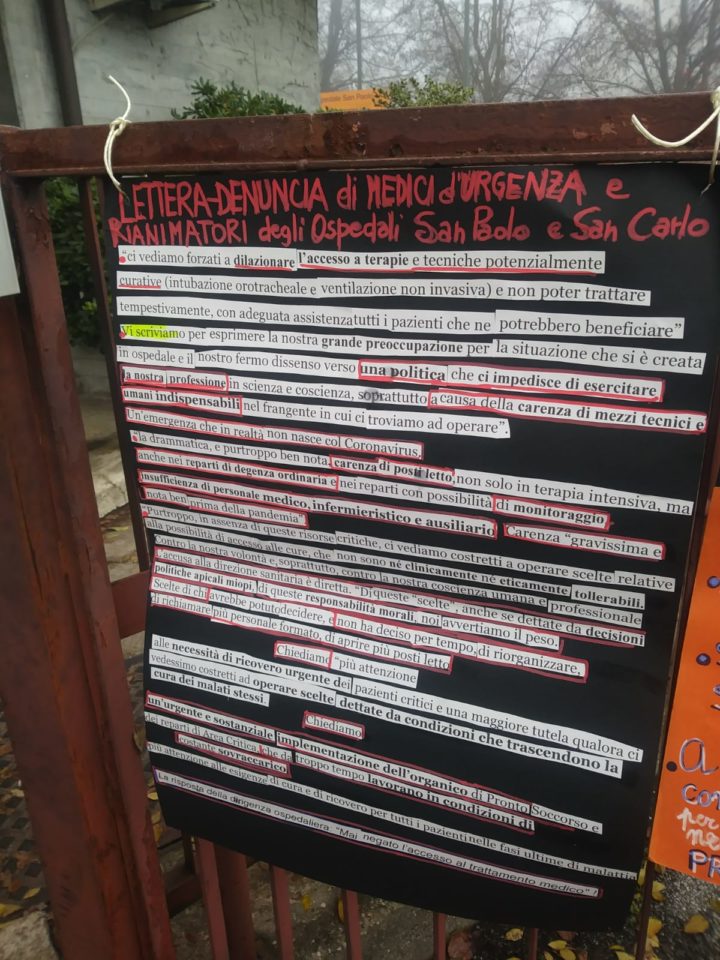 spedale San Paolo
LETTERA-DENUNCIA di MEDICI d'URGENZA e
RIANIMATORI degli Ospedali San Paolo e San Carlo
"ci vediamo forzati a dilazionare l'accesso a terapie e tecniche potenzialmente
curative (intubazione orotracheale e ventilazione non invasiva) e non poter trattare
tempestivamente, con adeguata assistenza tutti i pazienti che ne potrebbero beneficiare"
Vi scriviamo per esprimere la nostra grande preoccupazione per la situazione che si è creata
in ospedale e il nostro fermo dissenso verso una politica che ci impedisce di esercitare
la nostra professione in scienza e coscienza, soprattutto a causa della carenza di mezzi tecnici e
umani indispensabili nel frangente in cui ci troviamo ad operare".
Un'emergenza che in realtà non nasce col Coronavirus.
la drammatica, e purtroppo ben nota, carenza di posti letto, non solo in terapia intensiva, ma
anche nei reparti di degenza ordinaria e nei reparti con possibilità di monitoraggio
insufficienza di personale medico, infermieristico e ausiliario Carenza "gravissima e
nota ben prima della pandemia"
"Purtroppo, in assenza di queste risorse critiche, ci vediamo costretti a operare scelte relative
alla possibilità di accesso alle cure, che non sono né clinicamente né eticamente tollerabili.
Contro la nostra volontà e, soprattutto, contro la nostra coscienza umana e professionale
L'accusa alla direzione sanitaria è diretta. "Di queste "scelte", anche se dettate da decisioni
politiche apicali miopi, di queste responsabilità morali, noi avvertiamo il peso.
Scelte di chi avrebbe potuto decidere, e non ha deciso per tempo, di riorganizzare,
di richiamare più personale formato, di aprire più posti letto
Chiediamo "più attenzione
alle necessità di ricovero urgente dei pazienti critici e una maggiore tutela qualora ci
vedessimo costretti ad operare scelte dettate da condizioni che trascendono la
cura dei malati stessi.
Chiediamo
un'urgente e sostanziale implementazione dell'organico di Pronto Soccorso e
dei reparti di Area Critica, che da troppo tempo lavorano in condizioni di
costante sovraccarico
più attenzione alle esigenze di cura e di ricovero per tutti i pazienti nelle fasi ultime di malattia
La risposta della dirigenza ospedaliera: "Mai negato l'accesso al trattamento medico" !
a
co
per
ne
PR